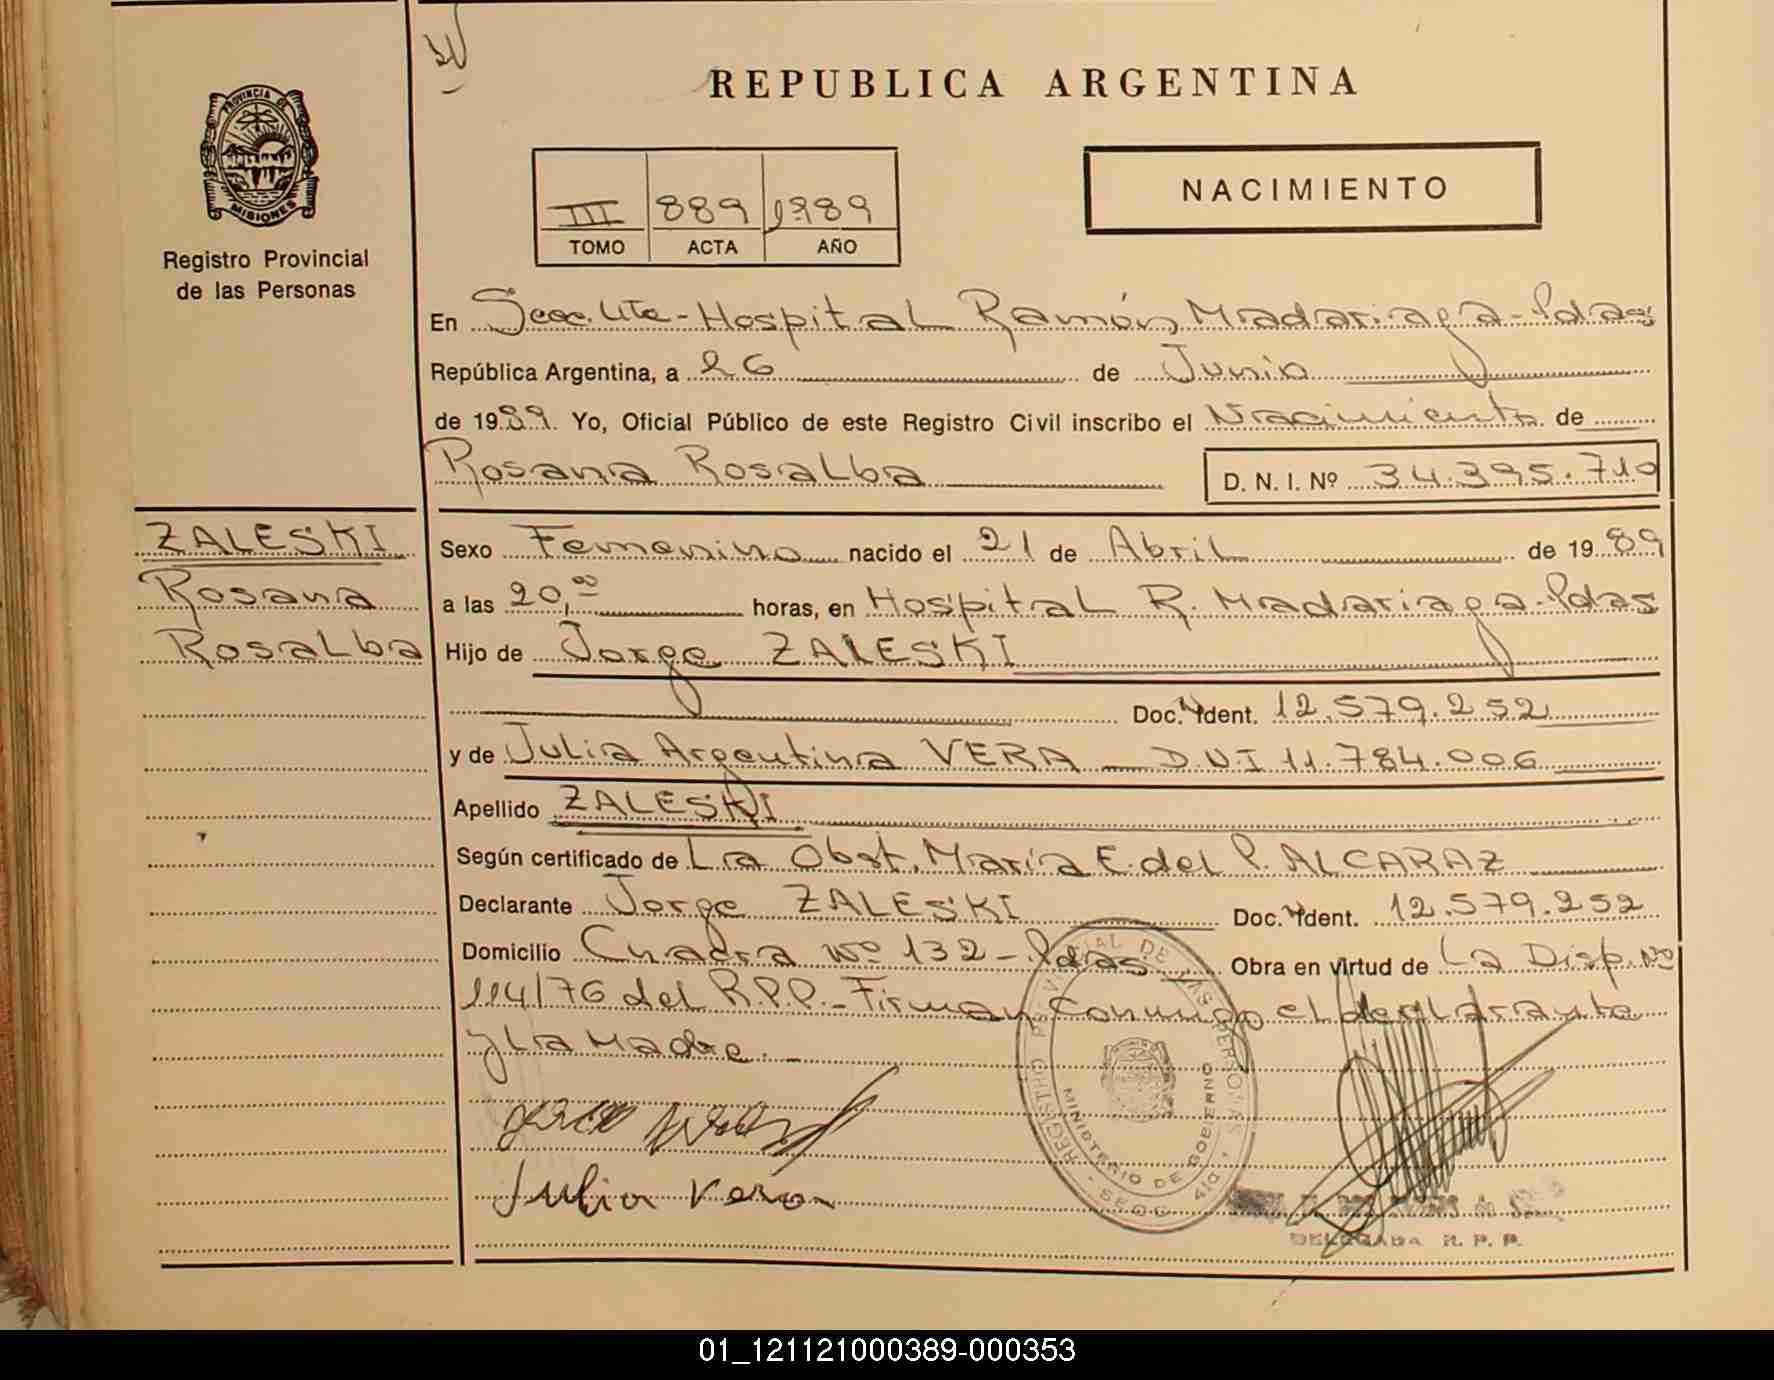 REPUBLICA ARGENTINA
PROVINCIA DE
MISIONES
Registro Provincial
de las Personas
III 889 1989
TOMO ACTA AÑO
NACIMIENTO
En Secc. Hospital Ramón Madariaga - Pdas
República Argentina, a 26 de Junio
de 1989. Yo, Oficial Público de este Registro Civil inscribo el Nacimiento de
Rosana Rosalba D. N. I. Nº 34.395.710
ZALESKI
Rosana
Rosalba
Sexo Femenino nacido el 21 de Abril de 1989
a las 20,00 horas, en Hospital R. Madariaga - Pdas
Hijo de Jorge ZALESKI
Doc. Ident. 12.579.252
y de Julia Argentina VERA - D.N.I 11.784.006
Apellido ZALESKI
Según certificado de La Obst. María E. del P. ALCARAZ
Declarante Jorge ZALESKI Doc. Ident. 12.579.252
Domicilio Chacra Nº 132 - Pdas Obra en virtud de La Disp. Nº
114/76 del R.P.P. - Firman conmigo el declarante
y La Madre. -
Julia Vera
REGISTRO PROVINCIAL DE LAS PERSONAS
MINISTERIO DE GOBIERNO
DELEGADA R. P. P.
01_121121000389-000353